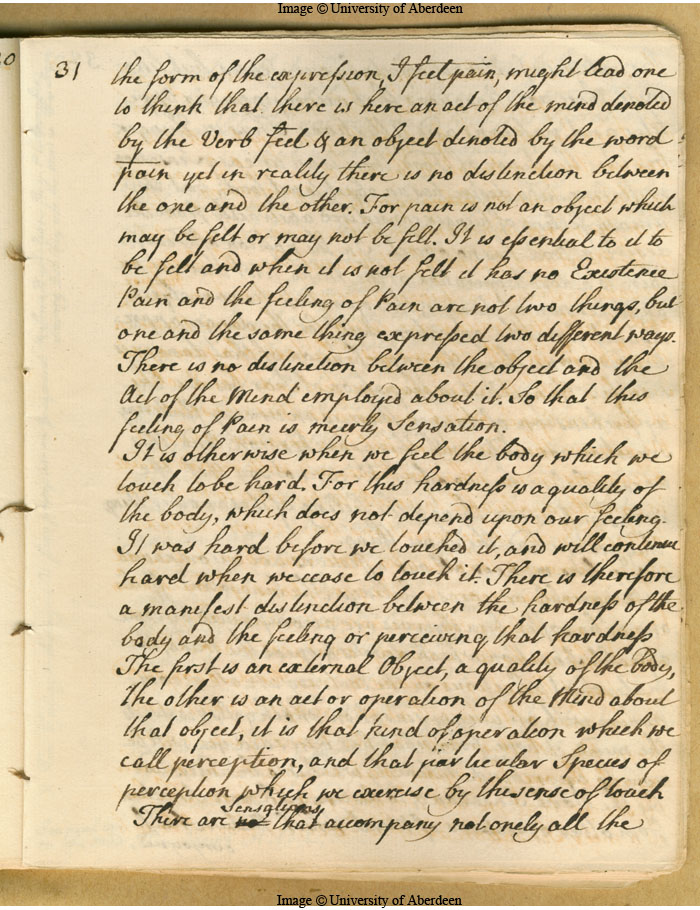 Image © University of Aberdeen
31
the form of the expression, I feel pain, might lead one
to think that there is here an act of the mind denoted
by the Verb feel & an object denoted by the word
pain yet in reality there is no distinction between
the one and the other. For pain is not an object which
may be felt or may not be felt. It is essential to it to
be felt and when it is not felt it has no Existence
Pain and the feeling of Pain are not two things, but
one and the same thing expressed two different ways.
There is no distinction between the object and the
Act of the Mind employed about it. So that this
feeling of Pain is meerly Sensation.
It is otherwise when we feel the body which we
touch to be hard. For this hardness is a quality of
the body, which does not depend upon our feeling.
It was hard before we touched it, and will continue
hard when we cease to touch it. There is therefore
a manifest distinction between the hardness of the
body and the feeling or perceiving that hardness
The first is an external Object, a quality of the body,
the other is an act or operation of the Mind about
that object, it is that kind of operation which we
call perception, and that particular Species of
perception which we exercise by the sense of touch
Sensations
There are that accompany not onely all the
Image © University of Aberdeen